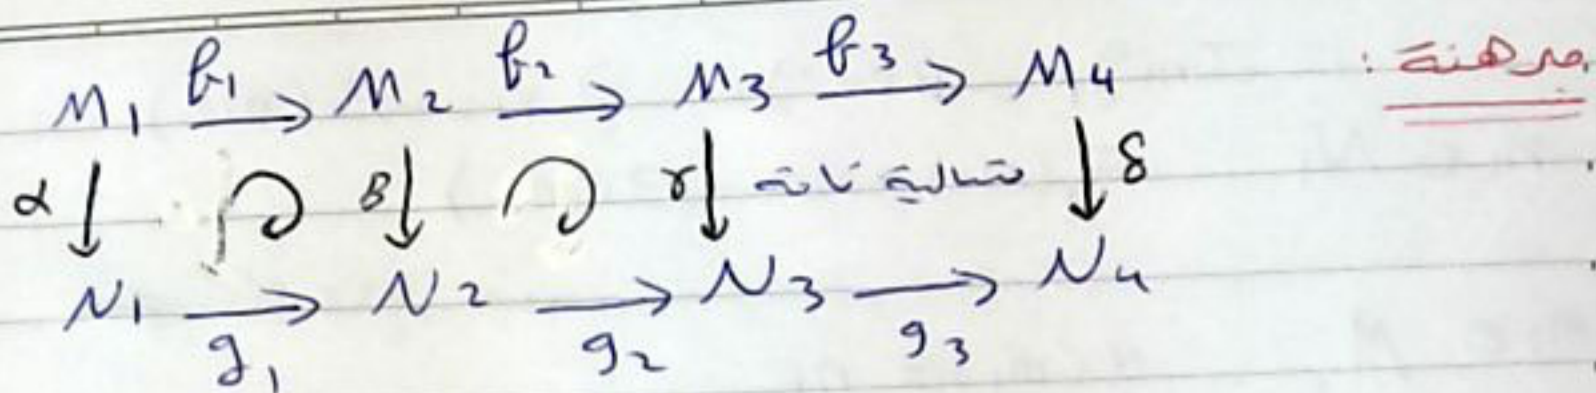 مبرهنة :
M₁ →f₁ M₂ →f₂ M₃ →f₃ M₄
α↓ β↓ γ↓ متتالية تامة ↓δ
N₁ →g₁ N₂ →g₂ N₃ →g₃ N₄